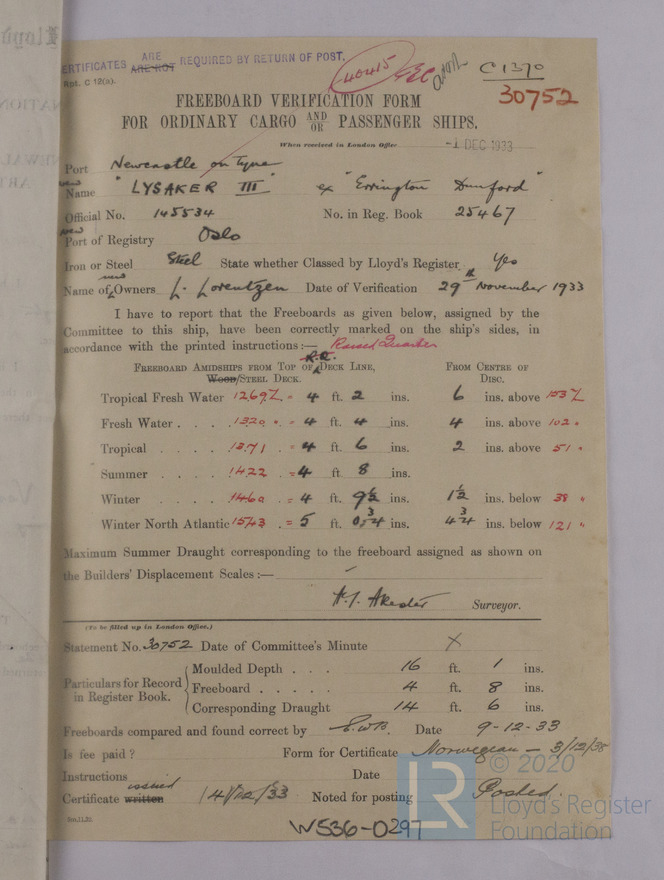 CERTIFICATES ARE ARE NOT REQUIRED BY RETURN OF POST.
Rpt. C 12(a).
40415
C 1370
30752
FREEBOARD VERIFICATION FORM
FOR ORDINARY CARGO AND/OR PASSENGER SHIPS.
When received in London Office -1 DEC 1933
Port Newcastle on Tyne
new
Name "LYSAKER III" ex "Errington Dunford"
Official No. 145534 No. in Reg. Book 25467
new
Port of Registry Oslo
Iron or Steel Steel State whether Classed by Lloyd's Register Yes
Name of new Owners L. Lorentzen Date of Verification 29th November 1933
I have to report that the Freeboards as given below, assigned by the
Committee to this ship, have been correctly marked on the ship's sides, in
accordance with the printed instructions:— Raised Quarter
Freeboard Amidships from Top of R.Q. Deck Line, From Centre of
Wood/Steel Deck. Disc.
Tropical Fresh Water 1269 = 4 ft. 2 ins. 6 ins. above 153
Fresh Water 1320 = 4 ft. 4 ins. 4 ins. above 102 "
Tropical 1371 = 4 ft. 6 ins. 2 ins. above 51 "
Summer 1422 = 4 ft 8 ins.
Winter 1460 = 4 ft. 9½ ins. 1½ ins. below 38 "
Winter North Atlantic 1543 = 5 ft. 0¾ ins. 4¾ ins. below 121 "
Maximum Summer Draught corresponding to the freeboard assigned as shown on
the Builders' Displacement Scales :— –
Surveyor.
(To be filled up in London Office.)
Statement No. 30752 Date of Committee's Minute X
Particulars for Record in Register Book.
Moulded Depth . . . 16 ft. 1 ins.
Freeboard . . . . . 4 ft. 8 ins.
Corresponding Draught 14 ft. 6 ins.
Freeboards compared and found correct by Date 9-12-33
Is fee paid ? Form for Certificate Norwegian – 3/12/38
Instructions Date
Certificate written issued 14/12/33 Noted for posting Posted.
W536-0297
LR
© 2020
Lloyd's Register
Foundation